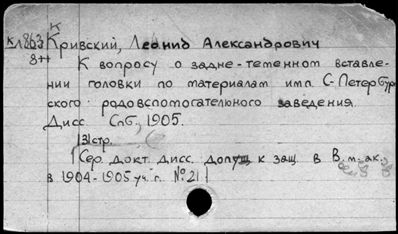 К
К1863 Кривский, Леонид Александрович
8++
К вопросу о задне-теменном вставле-
нии головки по материалам имп. С-Петербург
ского родовспомогательного заведения.
Дисс. Спб., 1905.
131 стр.
[Сер. докт. дисс. допущ к защ. в В.м-ак.
в 1904-1905 уч. г. №21]